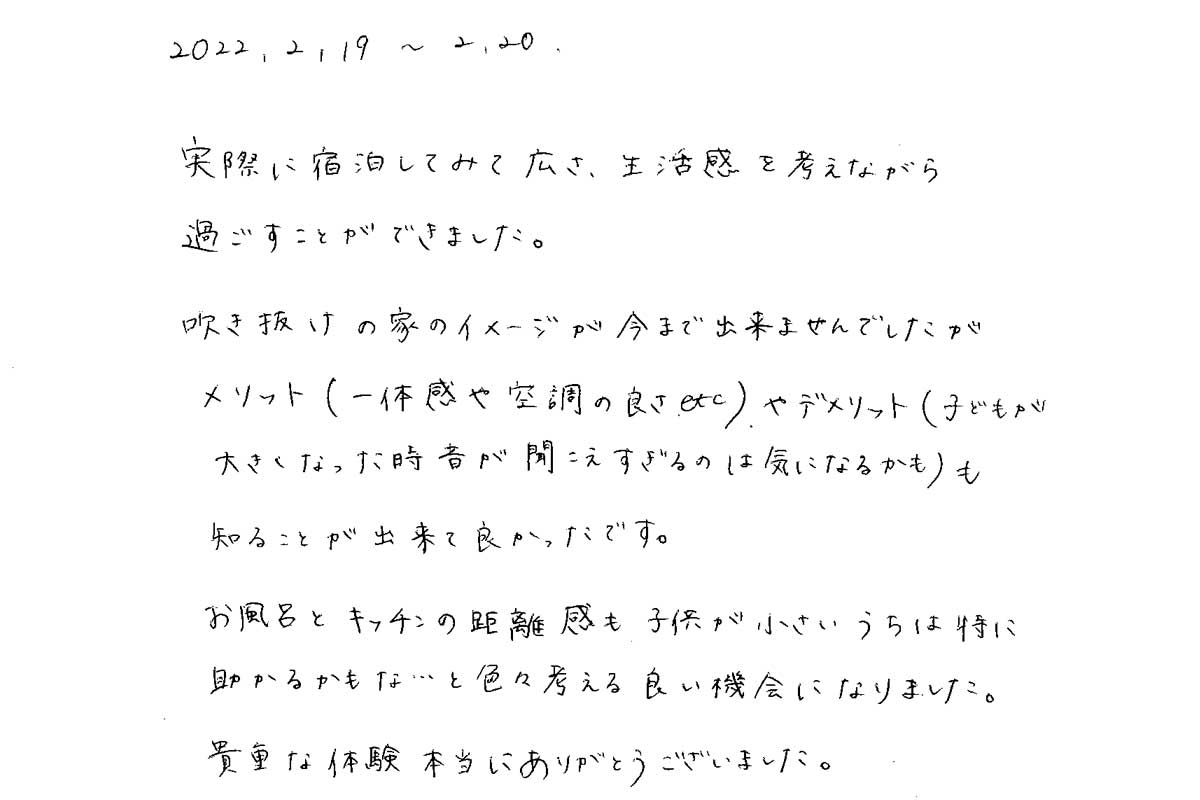 2022.2.19 ～ 2.20.
実際に宿泊してみて広さ、生活感を考えながら
過ごすことができました。
吹き抜けの家のイメージが今まで出来ませんでしたが
メリット(一体感や空調の良さ.etc)やデメリット(子どもが
大きくなった時音が聞こえすぎるのは気になるかも)も
知ることが出来て良かったです。
お風呂とキッチンの距離感も子供が小さいうちは特に
助かるかもな…と色々考える良い機会になりました。
貴重な体験本当にありがとうございました。